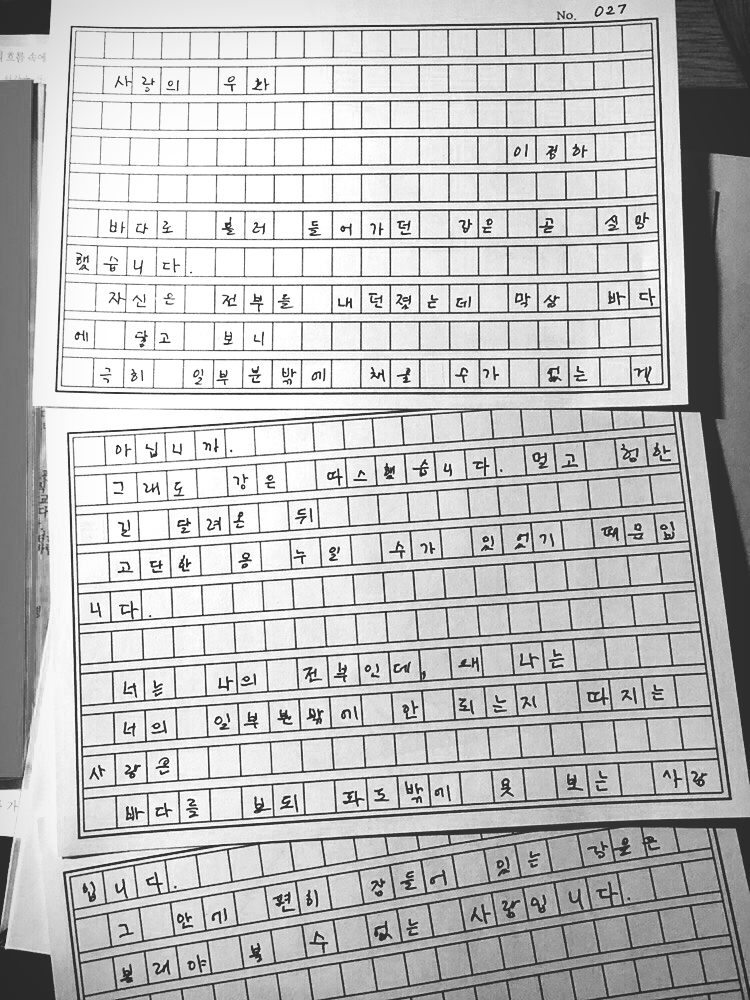 No. 027
사랑의 우화
이정하
바다로 흘러 들어가던 강은 곧 실망
했습니다.
자신은 전부를 내던졌는데 막상 바다
에 닿고 보니
극히 일부분밖에 채울 수가 없는 게
아닙니까.
그래도 강은 따스했습니다. 멀고 험한
길 달려온 뒤
고단한 몸 누일 수가 있었기 때문입
니다.
너는 나의 전부인데, 왜 나는
너의 일부분밖에 안 되는지 따지는
사랑은
바다를 보되 파도밖에 못 보는 사랑
입니다.
그 안에 편히 잠들어 있는 강물은
볼래야 볼 수 없는 사랑입니다.